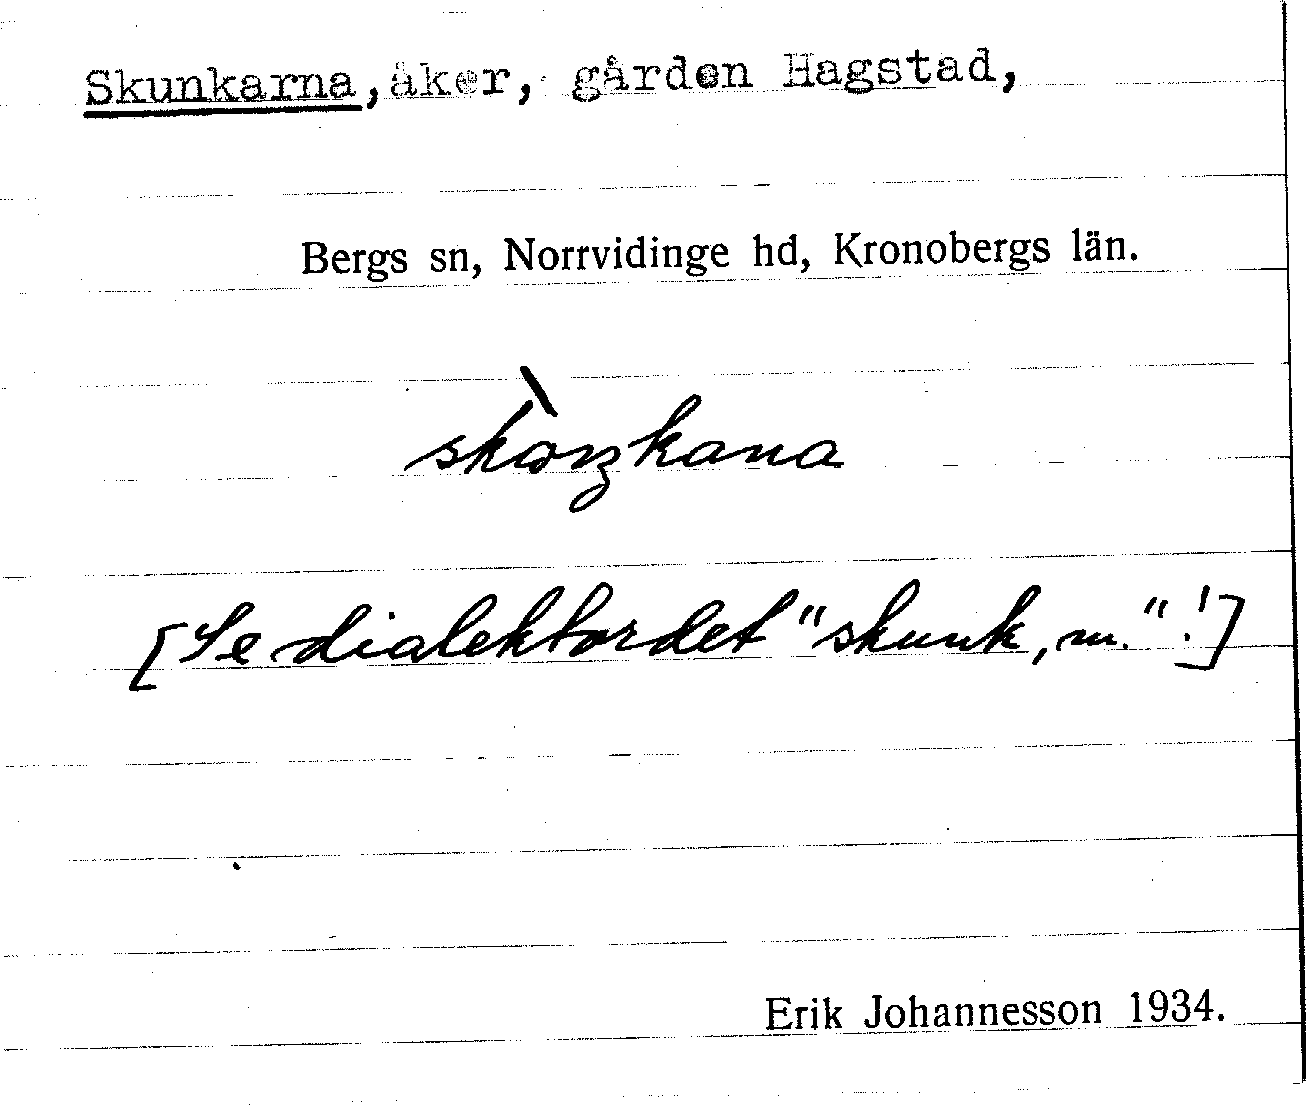 Skunkarna, åker, gården Hagstad,
Bergs sn, Norrvidinge hd, Kronobergs län.
[Se dialektordet "skunk, m."!]
Erik Johannesson 1934.